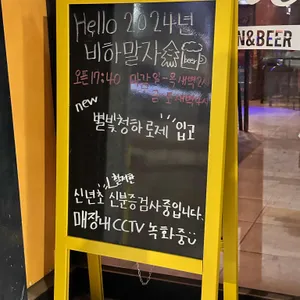 Hello 2024년
비하말자
beer
N&BEER
오픈 17:40 마감 일-목 새벽 2시
금 토 새벽
new
별빛청하 로제 입고
철저한
신년초 신분증검사중입니다.
매장내 CCTV 녹화중